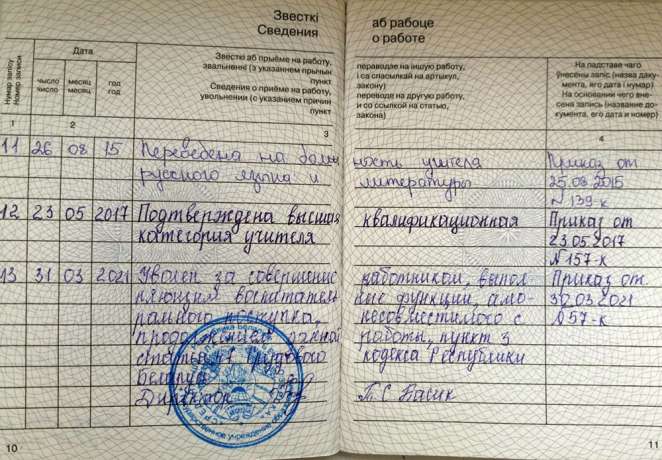 Звесткі
Сведения
аб рабоце
о работе
Нумар запісу
Номер записи
Дата
число
число
месяц
месяц
год
год
Звесткі аб прыёме на работу,
звальненні (з указаннем прычын
пункт
Сведения о приёме на работу,
увольнении (с указанием причин
пункт
пераводзе на іншую работу,
і са спасылкай на артыкул,
закону)
переводе на другую работу,
и со ссылкой на статью,
закона)
На падставе чаго
ўнесены запіс (назва даку-
мента, яго дата і нумар)
На основании чего вне-
сена запись (название до-
кумента, его дата и номер)
1 2 3 4
11 26 08 15 Переведена на долж ности учителя Приказ от
русского языка и литературы 25.08.2015
№ 139-к
12 23 05 2017 Подтверждена высшая квалификационная Приказ от
категория учителя 23.05.2017
№157-к
13 31 03 2021 Уволен за совершение работником, выпол- Приказ от
няющим воспитатель ные функции, амо- 03.2021
рального проступка, несовместимого с №57-к
продолжением данной работы, пункт 3
статьи 47 Трудового кодекса Республики
Беларусь
Директор Т.С. Басик
10
11